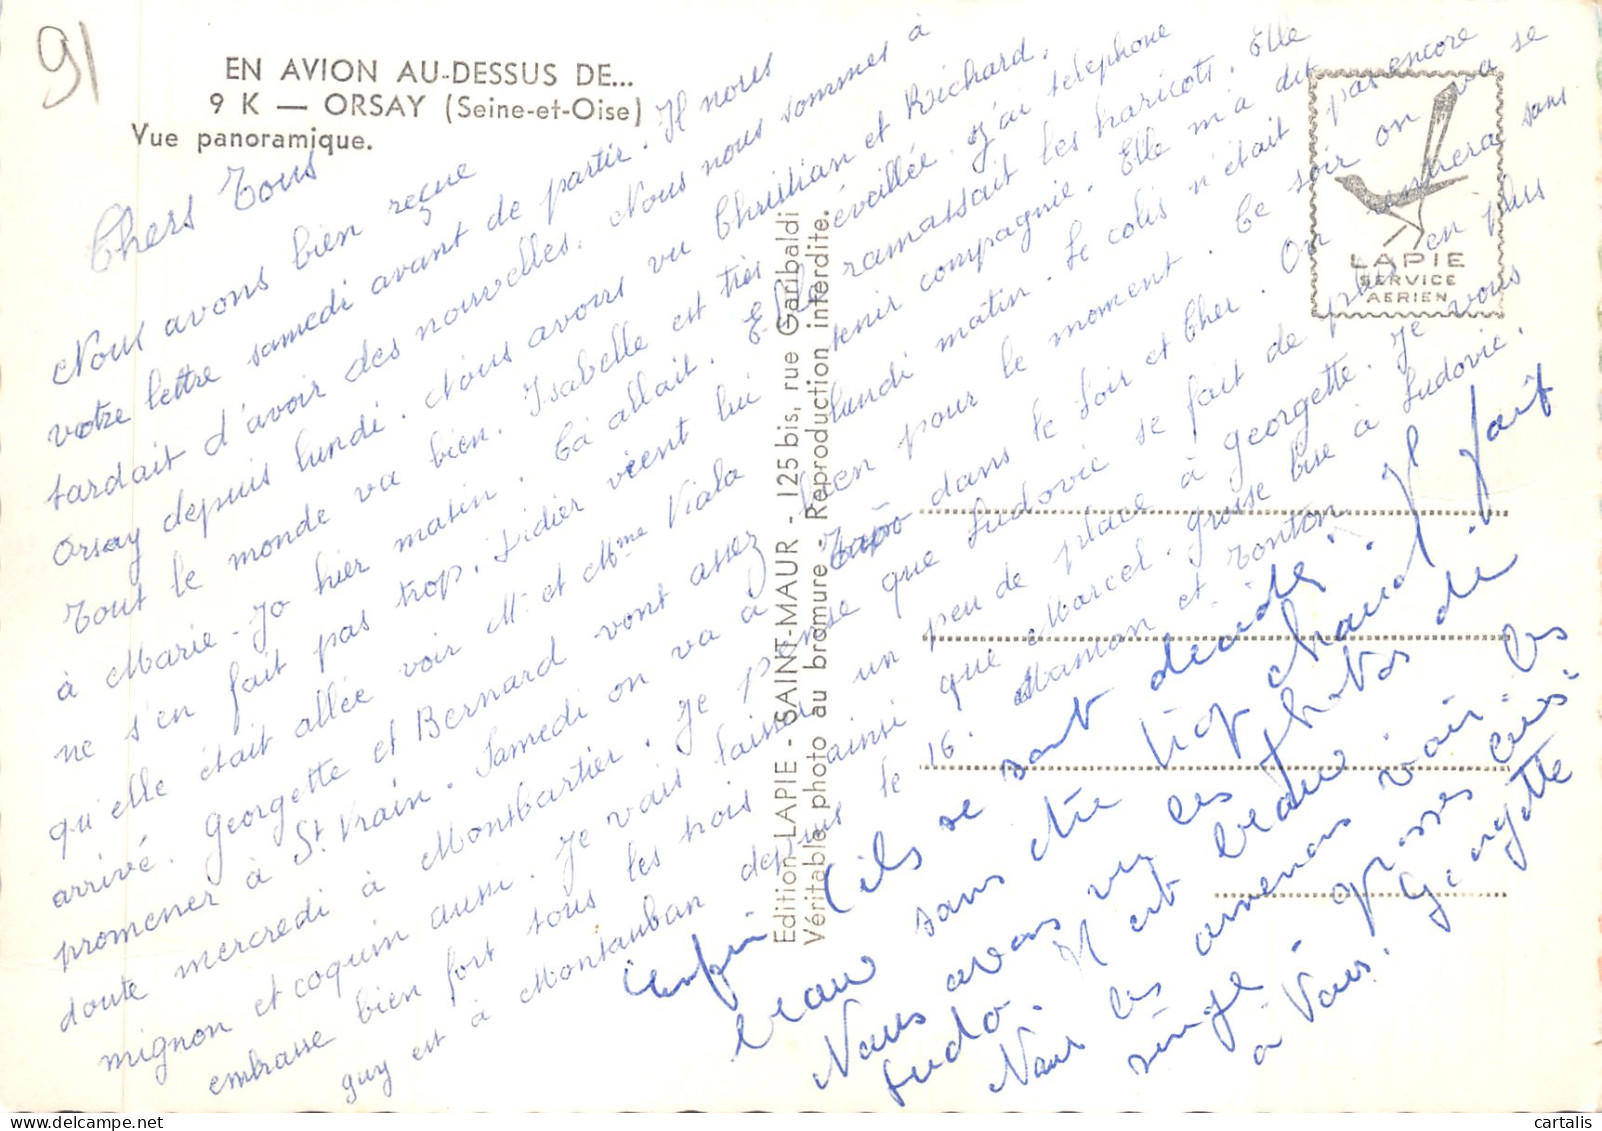 91
EN AVION AU-DESSUS DE...
9 K — ORSAY (Seine-et-Oise)
Vue panoramique.
LAPIE
SERVICE
AERIEN
Edition LAPIE - SAINT-MAUR - 125 bis, rue Garibaldi
Véritable photo au bromure - Reproduction interdite.
Chers Tous
Nous avons bien reçue
votre lettre samedi avant de partir. Il nous
tardait d'avoir des nouvelles. Nous nous sommes à
Orsay depuis lundi. Nous avons vu Christian et Richard.
Tout le monde va bien. Isabelle est très éveillée. J'ai telephone
à Marie-Jo hier matin. Ca allait. Elle ramassait les haricots. Elle
ne s'en fait pas trop. Didier vient lui tenir compagnie. Elle m'a dit
qu'elle était allée voir Mr et Mme Viala lundi matin. Le colis n'était pas encore
arrivé. Georgette et Bernard vont assez bien pour le moment. Ce soir on va se
promener à St Vrain. Samedi on va à dans le Loir et Cher. On rentrera sans
doute mercredi à Montbartier. Je pense que Ludovic se fait de plus en plus
mignon et coquin aussi. Je vais laisser un peu de place à Georgette. Je vous
embrasse bien fort tous les trois ainsi que Marcel. Grosse bise à Ludovic.
Guy est à Montauban depuis le 16. Maman et Tonton
Enfin (ils se sont décidés. Il fait
beau sans être trop chaud
Nous avons vu les photos de
Ludo. Il est beau.
Nous les amenons voir les
singe grosses bises
à Vous. Georgette